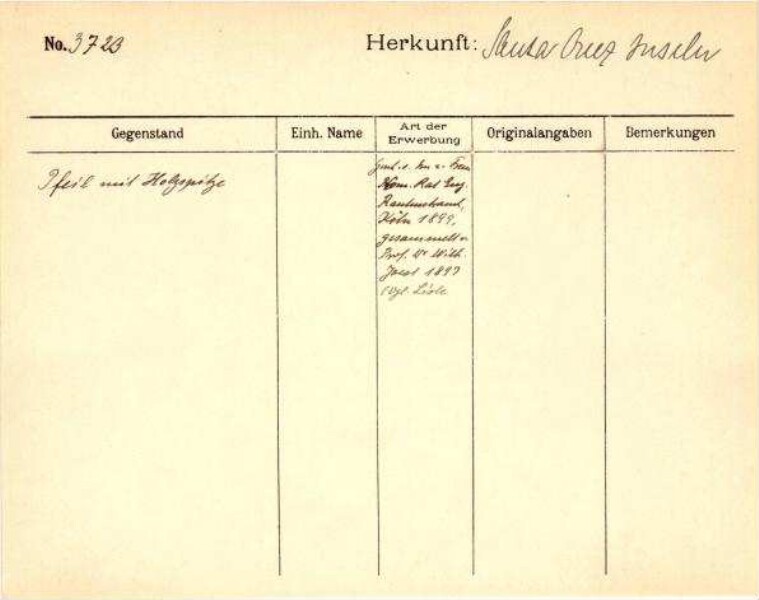 No. 3723
Herkunft: Santa Cruz Inseln
Gegenstand
Einh. Name
Art der
Erwerbung
Originalangaben
Bemerkungen
Pfeil mit Holzspitze
Frau
Kom. Rat Eug.
Rautenstrauch,
Köln 1899,
gesammelt v.
Prof. Dr Wilh.
Joest 1897
Vgl. Liste